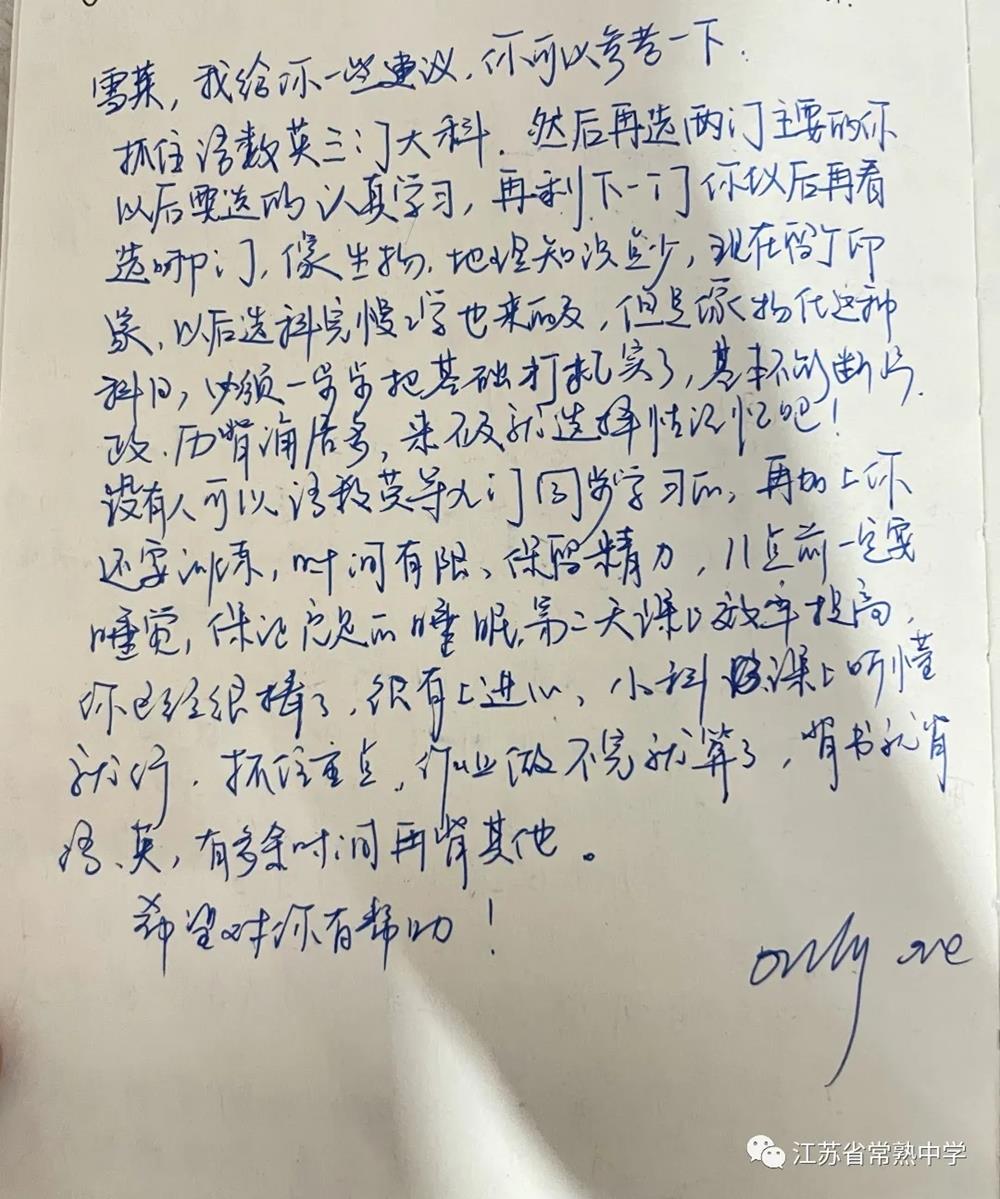 雪莱，我给你一些建议，你可以参考一下：
抓住语数英三门大科，然后再选两门主要的你
以后要选的认真学习，再剩下一门你以后再看
选哪门，像生物、地理知识点少，现在留个印
象，以后选科完慢慢学也来的及，但是像物化这种
科目，必须一步步把基础打扎实了，基本不能断片，
政、历背诵居多，来不及就选择性记忆吧！
没有人可以语数英等九门同步学习的，再加上你
还要训练，时间有限，保留精力，11点前一定要
睡觉，保证充足的睡眠，第二天课上效率提高，
你已经很棒了，很有上进心，小科课上听懂
就行，抓住重点，作业做不完就算了，背书就背
语、英，有多余时间再背其他。
希望对你有帮助！
only
江苏省常熟中学